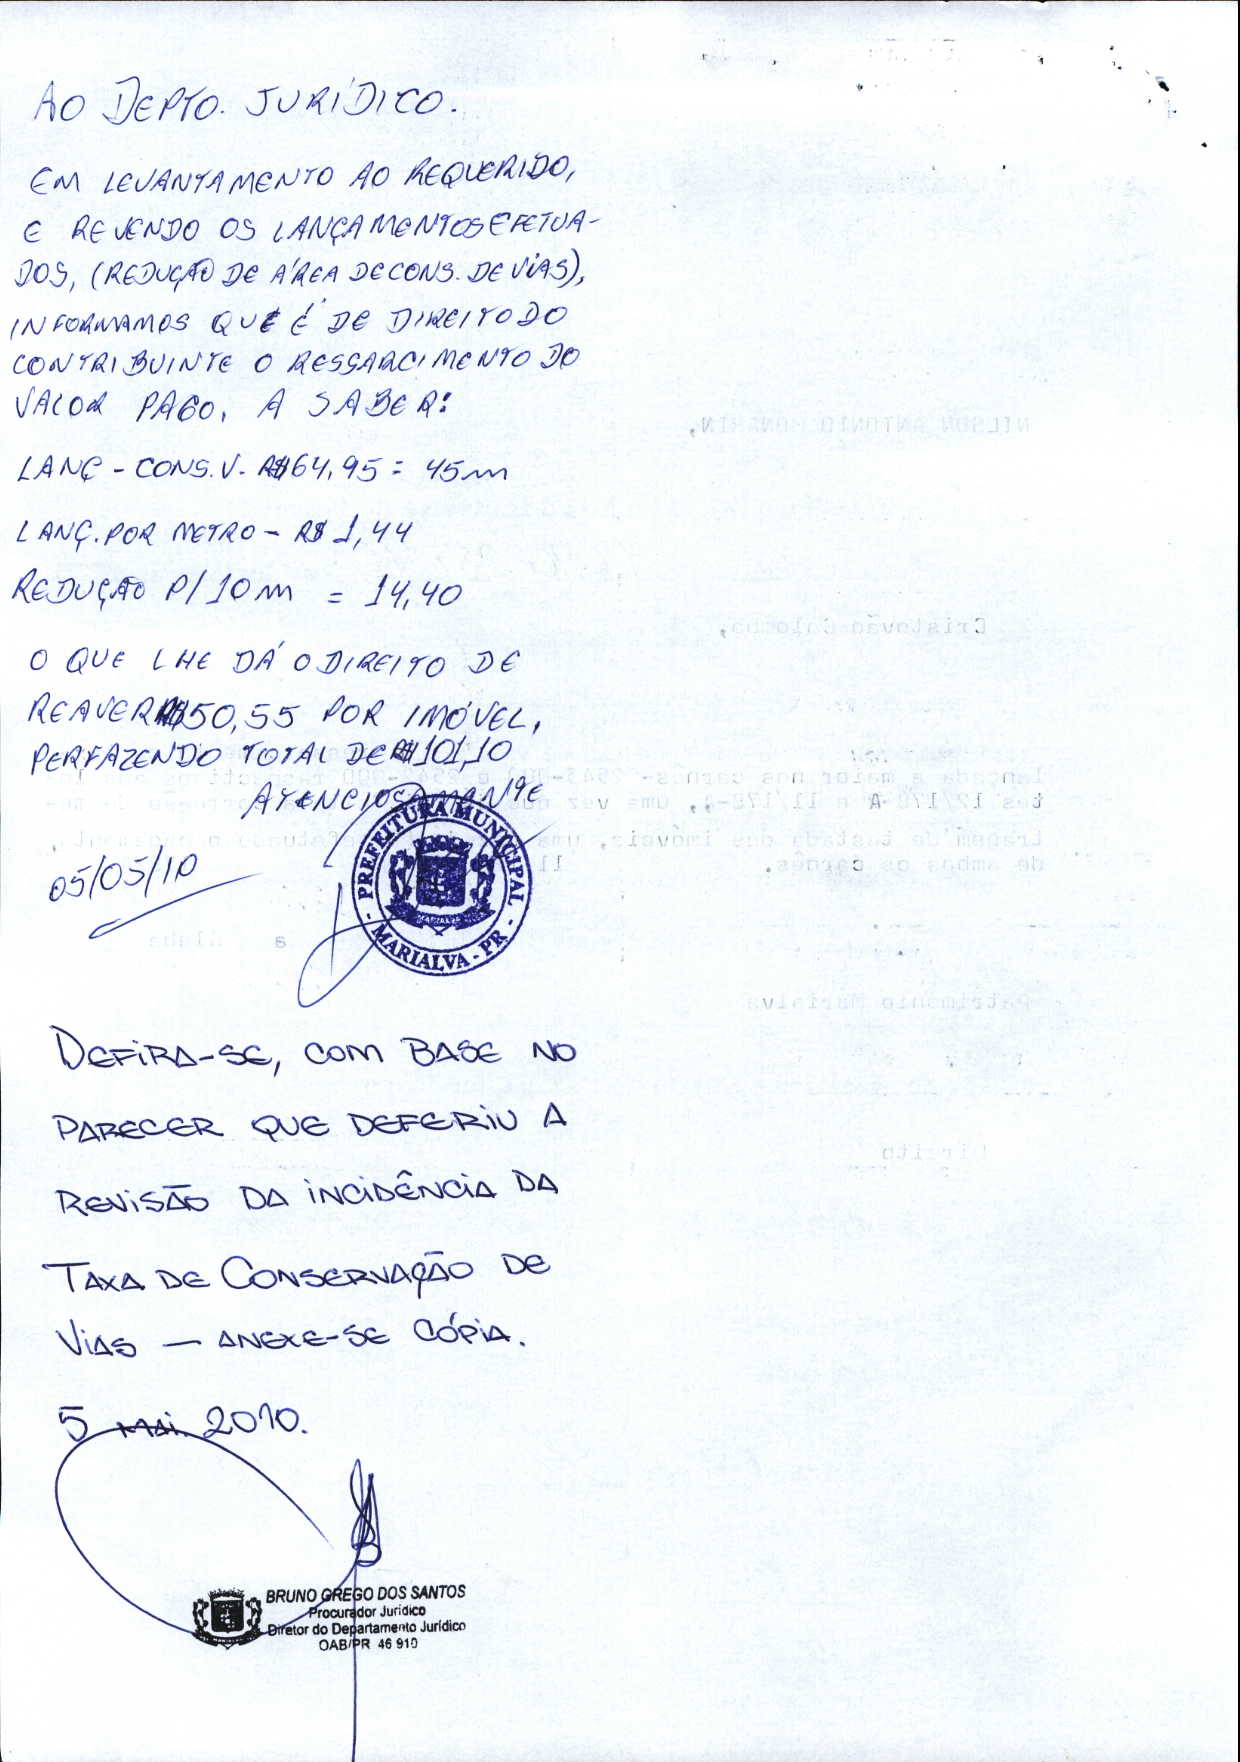 AO DEPTO. JURÍDICO.
EM LEVANTAMENTO AO REQUERIDO,
E REVENDO OS LANÇAMENTOS EFETUA-
DOS, (REDUÇÃO DE ÁREA DE CONS. DE VIAS),
INFORMAMOS QUE É DE DIREITO DO
CONTRIBUINTE O RESSARCIMENTO DO
VALOR PAGO, A SABER:
LANÇ - CONS. V. R$64,95 = 45m
LANÇ. POR METRO - R$ 1,44
REDUÇÃO P/ 10m = 14,40
O QUE LHE DÁ O DIREITO DE
REAVER R$50,55 POR IMÓVEL,
PERFAZENDO TOTAL DE R$101,10
ATENCIOSAMENTE
PREFEITURA MUNICIPAL
- MARIALVA - PR -
05/05/10
DEFIRA-SE, COM BASE NO
PARECER QUE DEFERIU A
REVISÃO DA INCIDÊNCIA DA
TAXA DE CONSERVAÇÃO DE
VIAS — ANEXE-SE CÓPIA.
5 MAI. 2010.
BRUNO GREGO DOS SANTOS
Procurador Jurídico
Diretor do Departamento Jurídico
OAB/PR 46 910
NILSON ANTONIO
Cristovão Colombo,
lançada a maior nos carnês-
de ambos os carnês.
Patrimonio Marialva
Direito